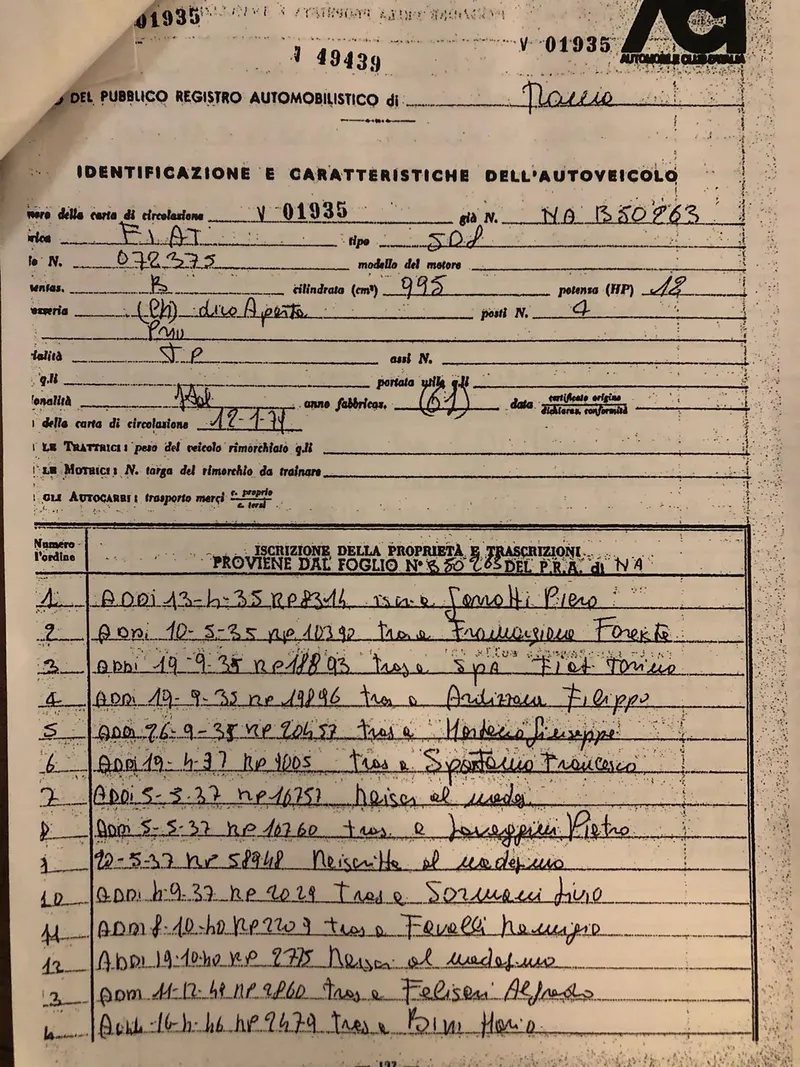 01935
V 01935
49439
AUTOMOBILE CLUB D'ITALIA
DEL PUBBLICO REGISTRO AUTOMOBILISTICO di
IDENTIFICAZIONE E CARATTERISTICHE DELL'AUTOVEICOLO
mero della carta di circolazione V 01935 già N. NA B50263
brica FIAT tipo 508
lo N. 072375 modello del motore
mentaz. B cilindrata (cm³) 995 potenza (HP) 12
ozzeria Aperta posti N. 4
ialità T P assi N.
q.li portata utile q.li
ionalità anno fabbricaz. data certificato origine
dichiaraz. conformità
della carta di circolazione
LE TRATTRICI : peso del veicolo rimorchiato q.li
LE MOTRICI : N. targa del rimorchio da trainare
GLI AUTOCARRI : trasporto merci c. proprio
c. terzi
Numero
l'ordine
ISCRIZIONE DELLA PROPRIETÀ E TRASCRIZIONI
PROVIENE DAL FOGLIO N° B50263 DEL P.R.A. di NA
1 ADDI 13-4-35 NP 8314 Piero
2 ADDI 10-5-35 NP 10392 tras a
3 ADDI 19-9-35 NP 18893 tras a SPA Fiat Torino
4 ADDI 19-9-35 NP 19896 tras a Filippo
5 ADDI 26-9-35 NP 20457 tras a Giuseppe
6 ADDI 19-4-37 NP 9005 tras a Francesco
7 ADDI 5-5-37 NP 10757 al
8 ADDI 5-5-37 NP 10760 tras a Pietro
20-5-37 NP 58948 Reiscritto al medesimo
10 ADDI 4-9-37 NP 2029 tras a Sormani Livio
11 ADDI 8-10-40 NP 2209 tras a Favelli Remigio
12 ADDI 19-10-40 NP 2775 al medesimo
3 ADDI NP 2860 tras a Feliseri Alfredo
4 16-4-46 NP 2479 tras a Bini Mario